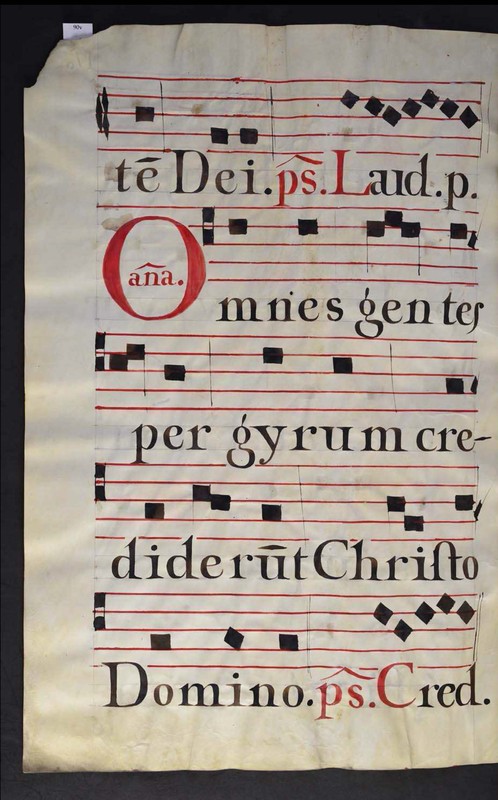 tē Dei. ps̄. Laud. p.
Omnes gentes
aña.
per gyrum cre-
diderūt Chriſto
Domino. ps̄. Cred.